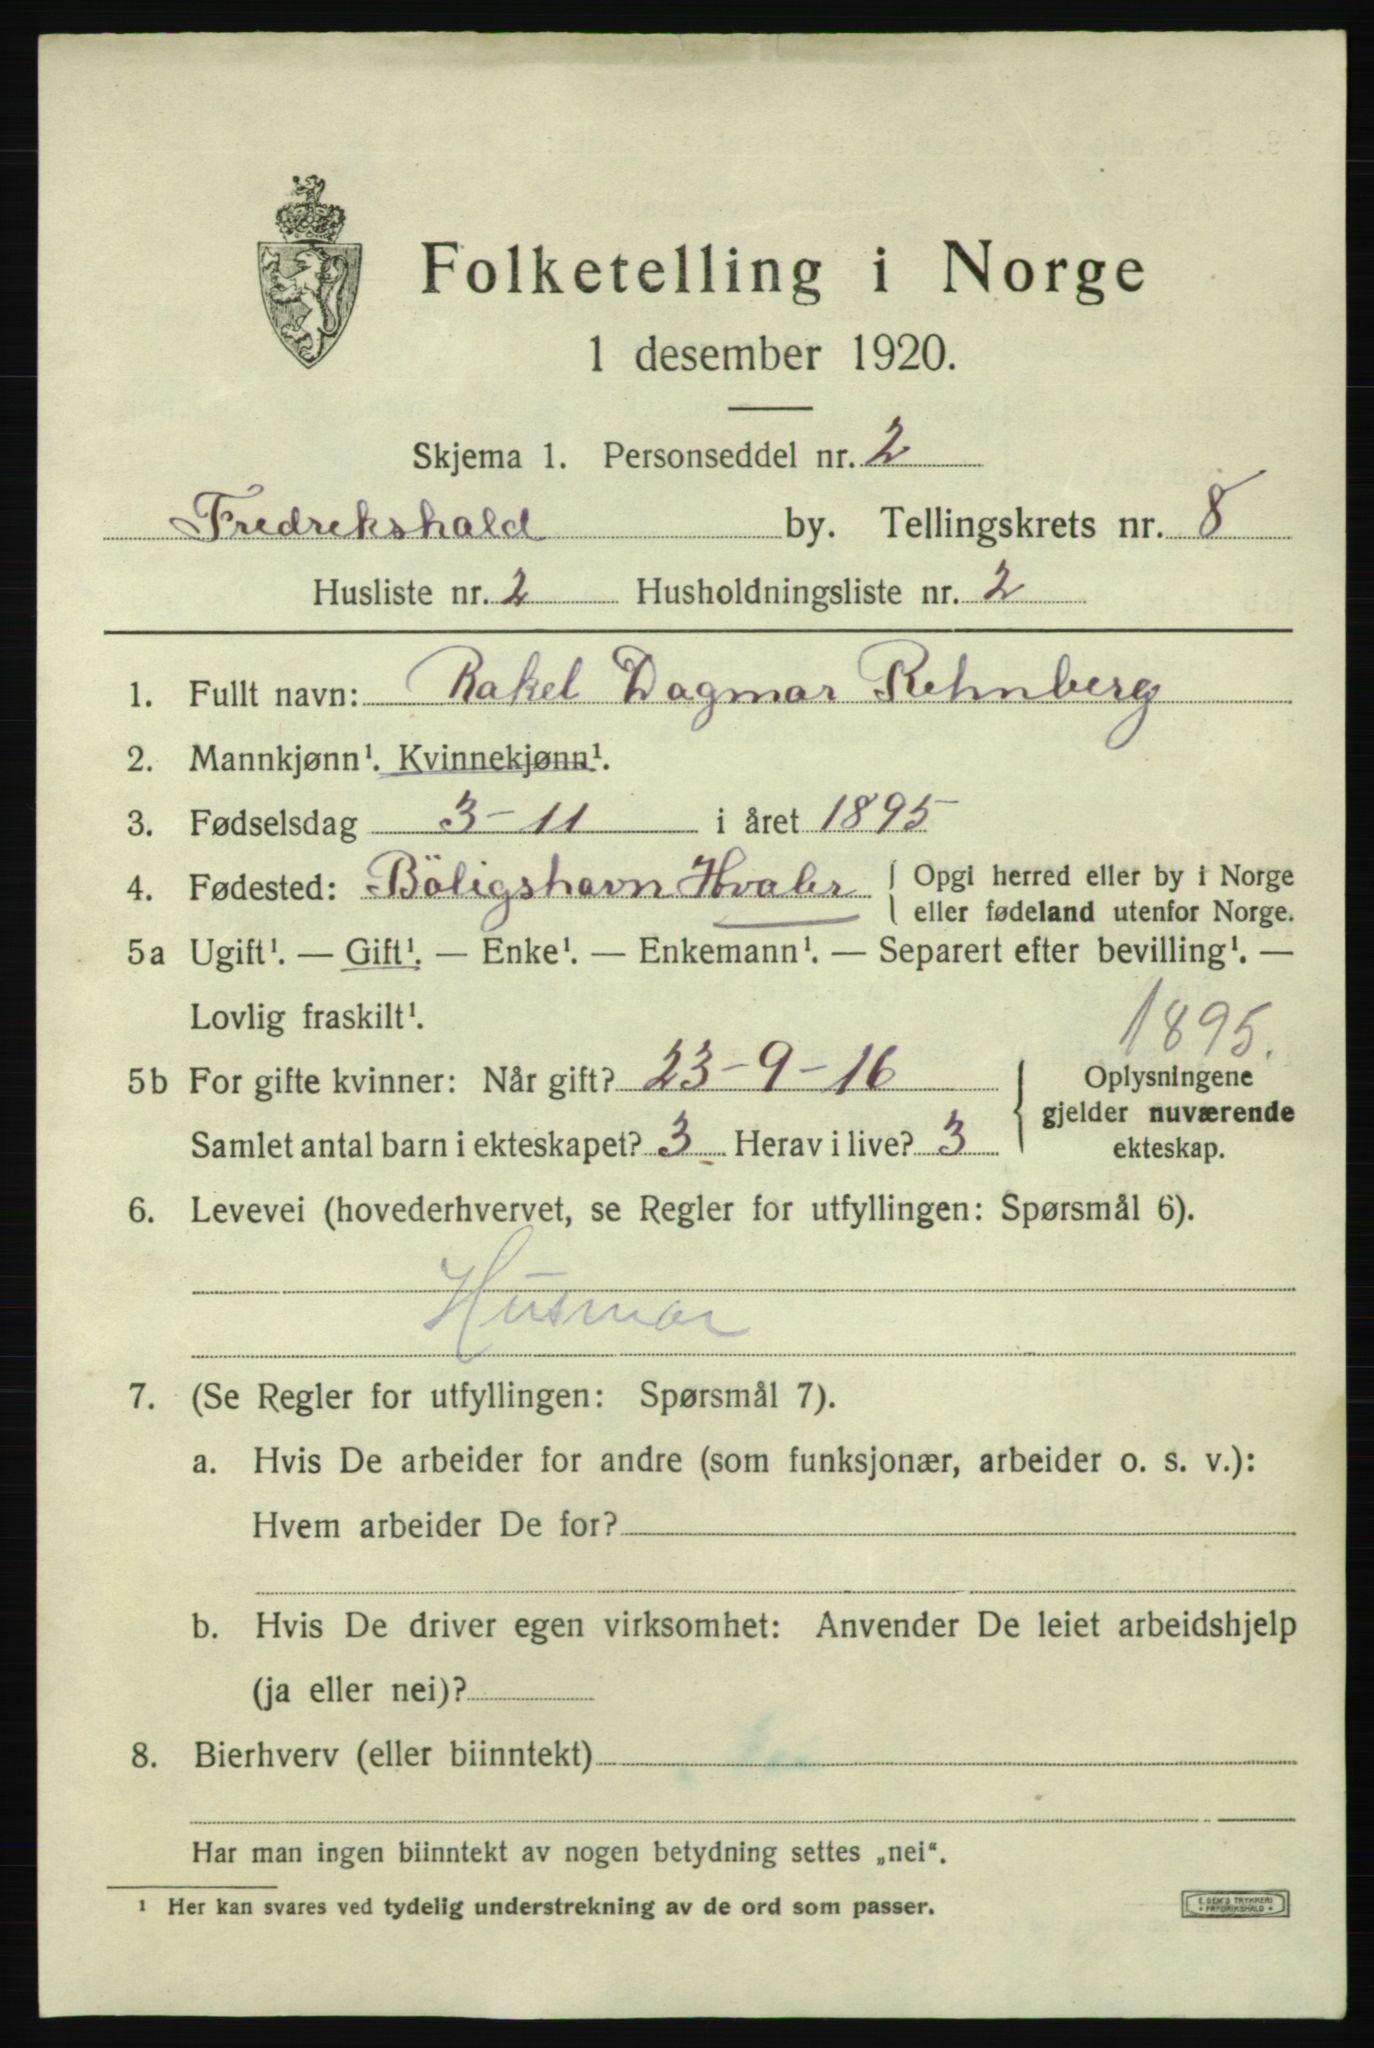 Folketelling i Norge
1 desember 1920.
Skjema 1. Personseddel nr. 2
Fredrikshald by. Tellingskrets nr. 8
Husliste nr. 2 Husholdningsliste nr. 2
1. Fullt navn: Rakel Dagmar Rehnberg
2. Mannkjønn¹. Kvinnekjønn¹.
3. Fødselsdag 3-11 i året 1895
4. Fødested: Böligshavn Hvaler { Opgi herred eller by i Norge
eller fødeland utenfor Norge.
5a Ugift¹. — Gift¹. — Enke¹. — Enkemann¹. — Separert efter bevilling¹. —
Lovlig fraskilt¹.
1895.
5b For gifte kvinner: Når gift? 23-9-16
Samlet antal barn i ekteskapet? 3 Herav i live? 3
{ Oplysningene
gjelder nuværende
ekteskap.
6. Levevei (hovederhvervet, se Regler for utfyllingen: Spørsmål 6).
Husmor
7. (Se Regler for utfyllingen: Spørsmål 7).
a. Hvis De arbeider for andre (som funksjonær, arbeider o. s. v.):
Hvem arbeider De for?
b. Hvis De driver egen virksomhet: Anvender De leiet arbeidshjelp
(ja eller nei)?
8. Bierhverv (eller biinntekt)
Har man ingen biinntekt av nogen betydning settes „nei“.
¹ Her kan svares ved tydelig understrekning av de ord som passer.